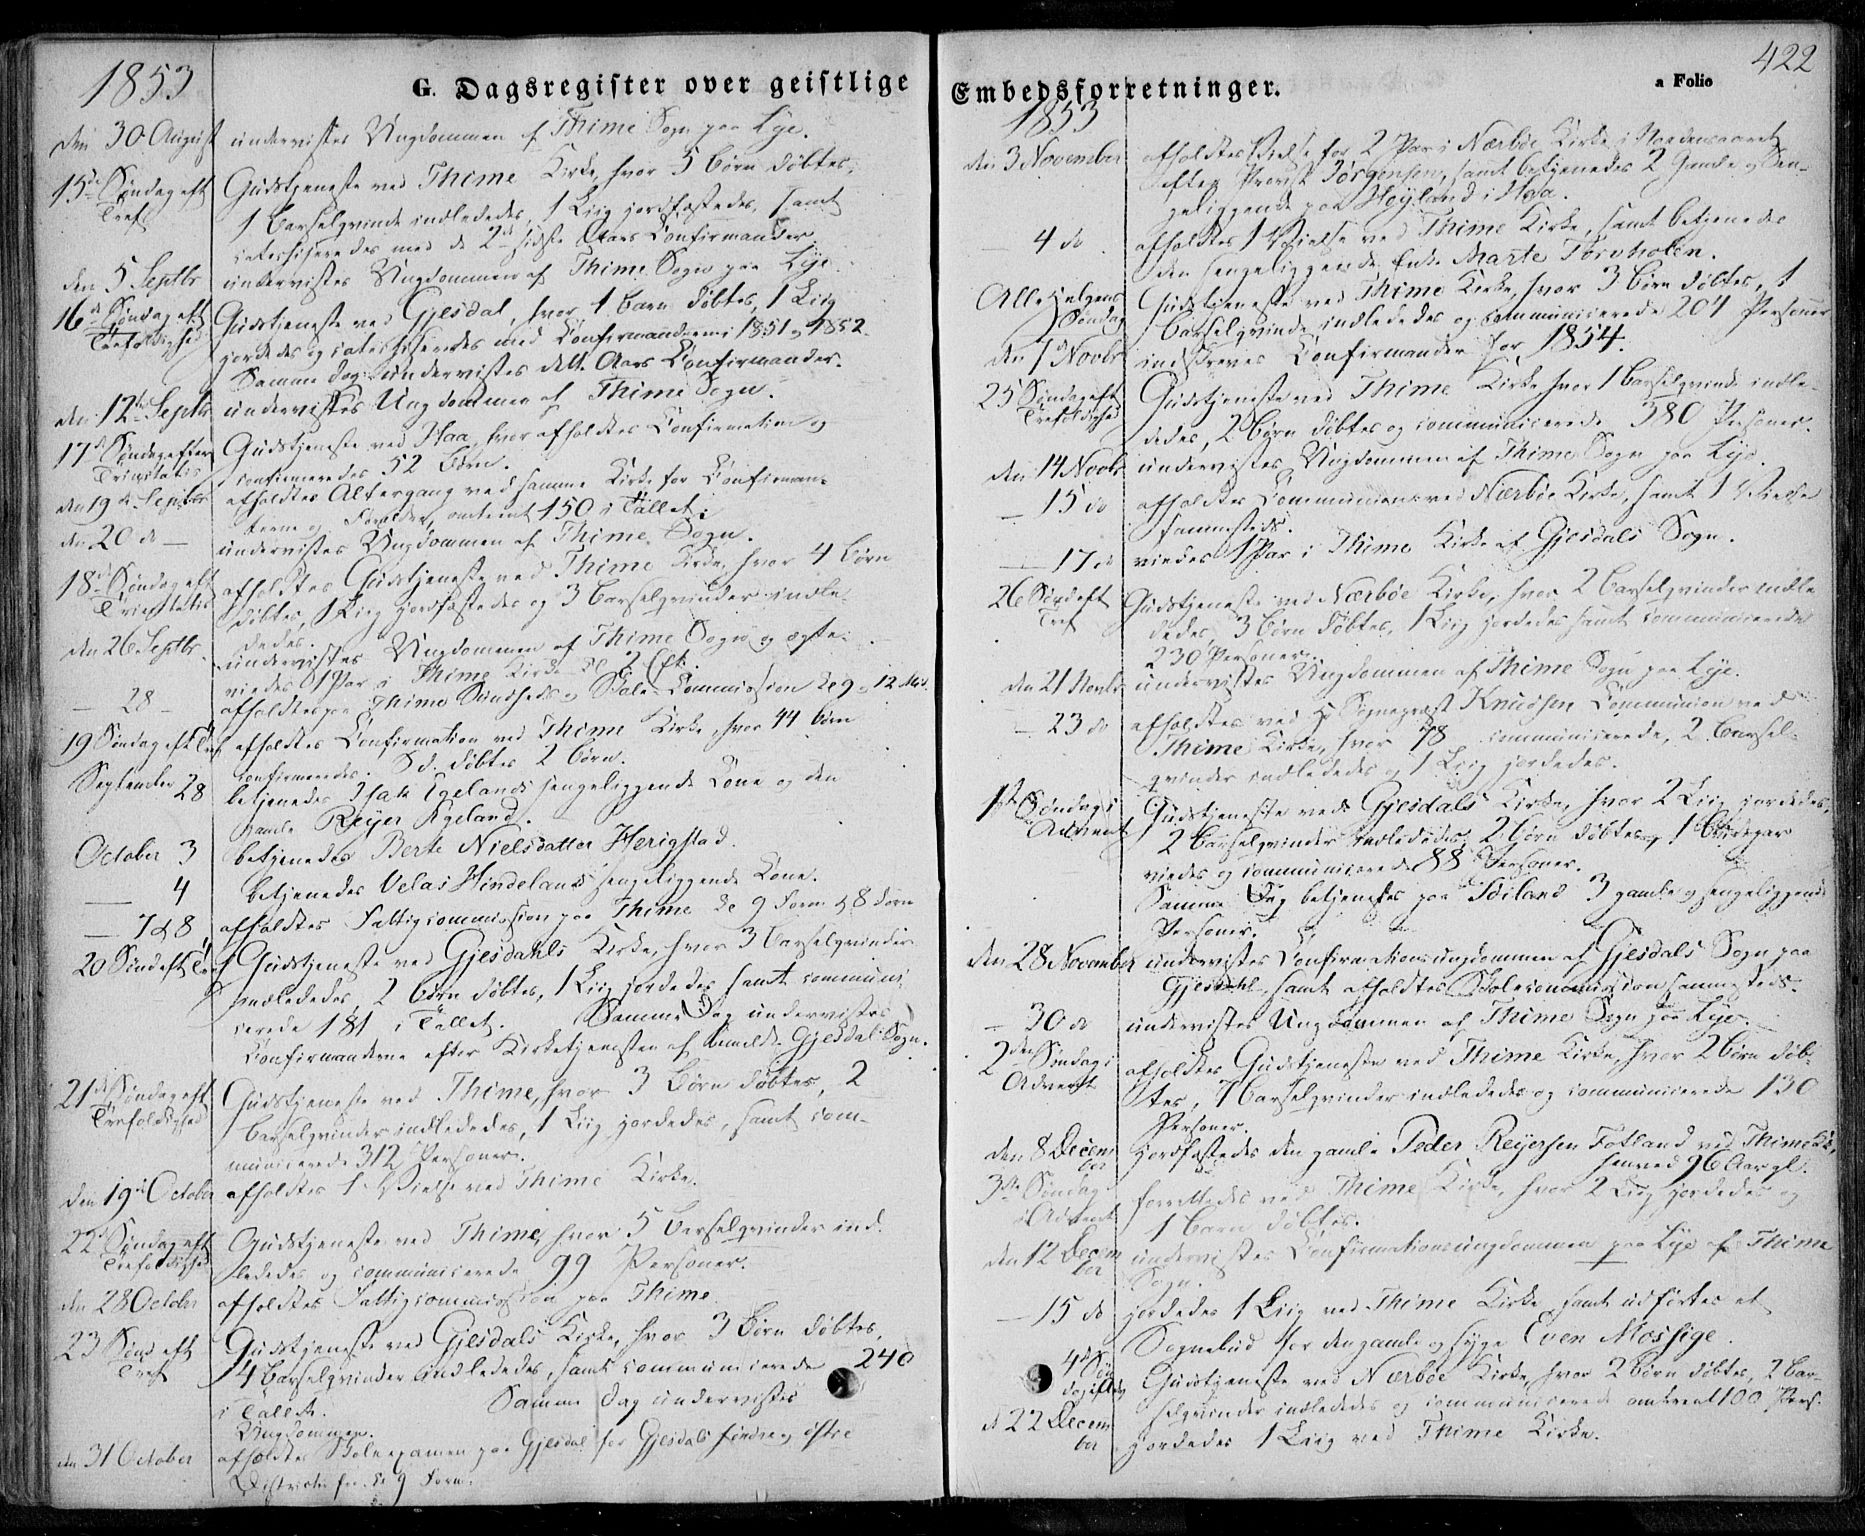 1853
G. Dagsregister over geistlige
den 30 August undervistes Ungdommen af Thime Sogn paa Lye.
15de Søndag eft Gudstjeneste ved Thime Kirke, hvor 5 Børn døbtes,
Tref 1 Barselqvinde indlededes, 1 Liig jordfæstedes, samt
catechiseredes med de 2de sidste Aars Confirmander
den 5 Septbr undervistes Ungdommen af Thime Sogn paa Lye.
16de Søndag eft Gudstjeneste ved Gjesdal, hvor 1 Barn døbtes, 1 Liig
Trefoldighed jordedes og catechiseredes med Confirmanderne i 1851 og 1852
Samme Dag undervistes dette Aars Confirmander.
den 12te Septbr undervistes Ungdommen af Thime Sogn.
17de Søndag efter Gudstjeneste ved Haa, hvor afholdtes Confirmation og
Trinitatis confirmeredes 52 Børn.
den 19de Septbr afholdtes Altergang ved samme Kirke for Confirman-
terne og Forældre, omtrent 150 i Tallet.
den 20 do — undervistes Ungdommen af Thime Sogn.
18de Søndag eft afholdtes Gudstjeneste ved Thime Kirke, hvor 4 Børn
Trinitatis døbtes, 1 Liig jordfæstedes og 3 Barselqvinder indle-
dedes.
den 26 Septbr. undervistes Ungdommen af Thime Sogn og ægte-
viedes 1 Par i Thime Kirke Kl 2 Eft.
— 28 — afholdtes paa Thime Sundheds og Skole-Commission Kl 9 og 12 Mid.
19 Søndag eft Tref afholdtes Confirmation ved Thime Kirke, hvor 44 Børn
confirmeredes. S. d. døbtes 2 Børn.
September 28 betjenedes Isak Egelands sengeliggende Kone og den
gamle Reyer Ageland.
October 3 betjenedes Berte Nielsdatter Herigstad.
— 4 betjenedes Velas Hindelands sengeliggende Kone.
— 7 & 8 afholdtes Fattigcommission paa Thime Kl 9 Form & 8 Form
20 Sønd eft Tref Gudstjeneste ved Gjesdahls Kirke, hvor 3 Barselqvinder
indlededes, 2 Børn døbtes, 1 Liig jordedes samt communi-
cerede 181 i Tallet. Samme Dag undervistes
Confirmanderne efter Kirketjenesten af Gjesdal Sogn.
21de Søndag eft Gudstjeneste ved Thime, hvor 3 Børn døbtes, 2
Trefoldighed Barselqvinder indlededes, 1 Liig jordedes, samt com-
municerede 312 Personer.
den 19de October afholdtes 1 Vielse ved Thime Kirke.
22de Søndag eft Gudstjeneste ved Thime, hvor 5 Barselqvinder ind-
Trefoldighed lededes og communicerede 99 Personer.
den 28 Octobr afholdtes Fattigcommission paa Thime
23 Sønd eft Gudstjeneste ved Gjesdals Kirke, hvor 3 Børn døbtes,
Tref 4 Barselqvinder indlededes, samt communicerede 240
i Tallet. Samme Dag undervistes
Ungdommen.
den 31 October afholdtes Skoleexamen paa Gjesdal for Gjesdals søndre og østre
Districter fra Kl 9 Form.
422
Embedsforretninger.
a Folio
1853
den 3 November afholdtes Vielse for 2 Par i Nærbøe Kirke i
efter Provst Jørgensen, samt betjenedes 2 Gamle og Sen-
geliggende paa Høyland i Haa.
— 4 do afholdtes 1 Vielse ved Thime Kirke, samt betjenedes
den sengeliggende Enke Marte Torvholen.
Alle Helgens Gudstjeneste ved Thime Kirke, hvor 3 Børn døbtes, 1
Søndag Barselqvinde indlededes og communicerede 204 Personer
den 7de Novbr indskreves Confirmander for 1854.
25 Søndag eft Gudstjeneste ved Thime Kirke hvor 1 Barselqvinde indle-
Trefoldighed dedes, 2 Børn døbtes og communicerede 380 Personer.
den 14 Novbr undervistes Ungdommen af Thime Sogn paa Lye.
— 15 do afholdtes Communion ved Nærbøe Kirke, samt 1 Vielse
sammesteds.
— 17 do viedes 1 Par i Thime Kirke af Gjesdals Sogn.
26 Sønd eft Gudstjeneste ved Nærbøe Kirke, hvor 2 Barselqvinder indle
Tref dedes, 3 Børn døbtes, 1 Liig jordedes samt communicerede
230 Personer.
den 21 Novbr undervistes Ungdommen af Thime Sogn paa Lye.
— 23 do afholdtes ved Hr Sognepræst Knudsen Communion ved
Thime Kirke, hvor 78 communicerede, 2 Barsel-
qvinder indlededes og 1 Liig jordedes.
1ste Søndag i Gudstjeneste ved Gjesdals Kirke, hvor 2 Liig jordedes,
Advent 2 Barselqvinder indlededes, 2 Børn døbtes, 1 Brudepar
viedes og communicerede 88 Personer.
Samme Dag betjenedes paa 3 gamle og sengeliggende
Personer.
den 28 November undervistes Confirmationsungdommen af Gjesdals Sogn paa
Gjesdahl, samt afholdtes Skolecommission sammesteds.
— 30 do undervistes Ungdommen af Thime Sogn paa Lye.
2den Søndag i afholdtes Gudstjeneste ved Thime Kirke, hvor 2 Børn døb-
Advent tes, 7 Barselqvinder indlededes og communicerede 130
Personer.
den 8 Decem jordfæstedes den gamle Peder Reyersen Fotland ved Thime K.,
ber henved 96 Aar gl.
3die Søndag forrettedes ved Thime Kirke, hvor 2 Liig jordedes og
i Advent 1 Barn døbtes.
den 12 Decem undervistes Confirmationsungdommen paa Lye af Thime
ber Sogn.
— 15 do jordedes 1 Liig ved Thime Kirke samt udførtes et
Sognebud for den gamle og syge Even Mossige.
4de Søn Gudstjeneste ved Nærbøe Kirke, hvor 2 Børn døbtes, 2 Bar-
dag i Adv selqvinder indlededes og communicerede omtrent 100 Pers.
d 22 Decem jordedes 1 Liig ved Thime Kirke.
ber